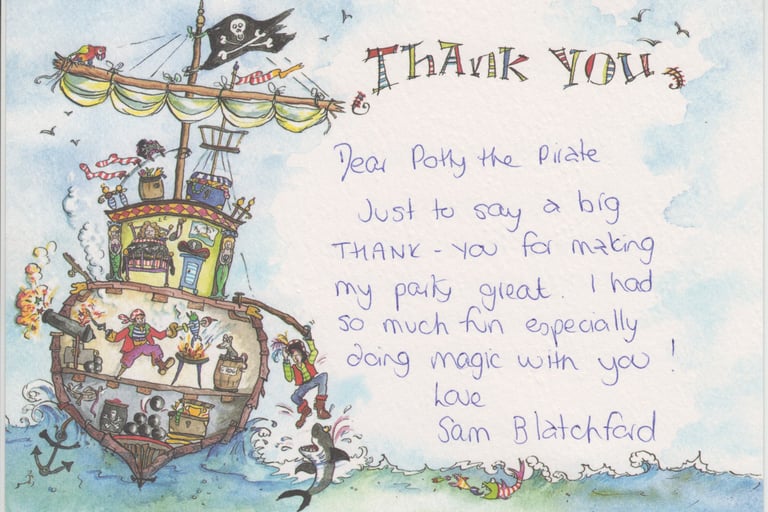 THANK YOU
Dear Polly the Pirate
Just to say a big
THANK-YOU for making
my party great. I had
so much fun especially
doing magic with you!
Love
Sam Blatchford